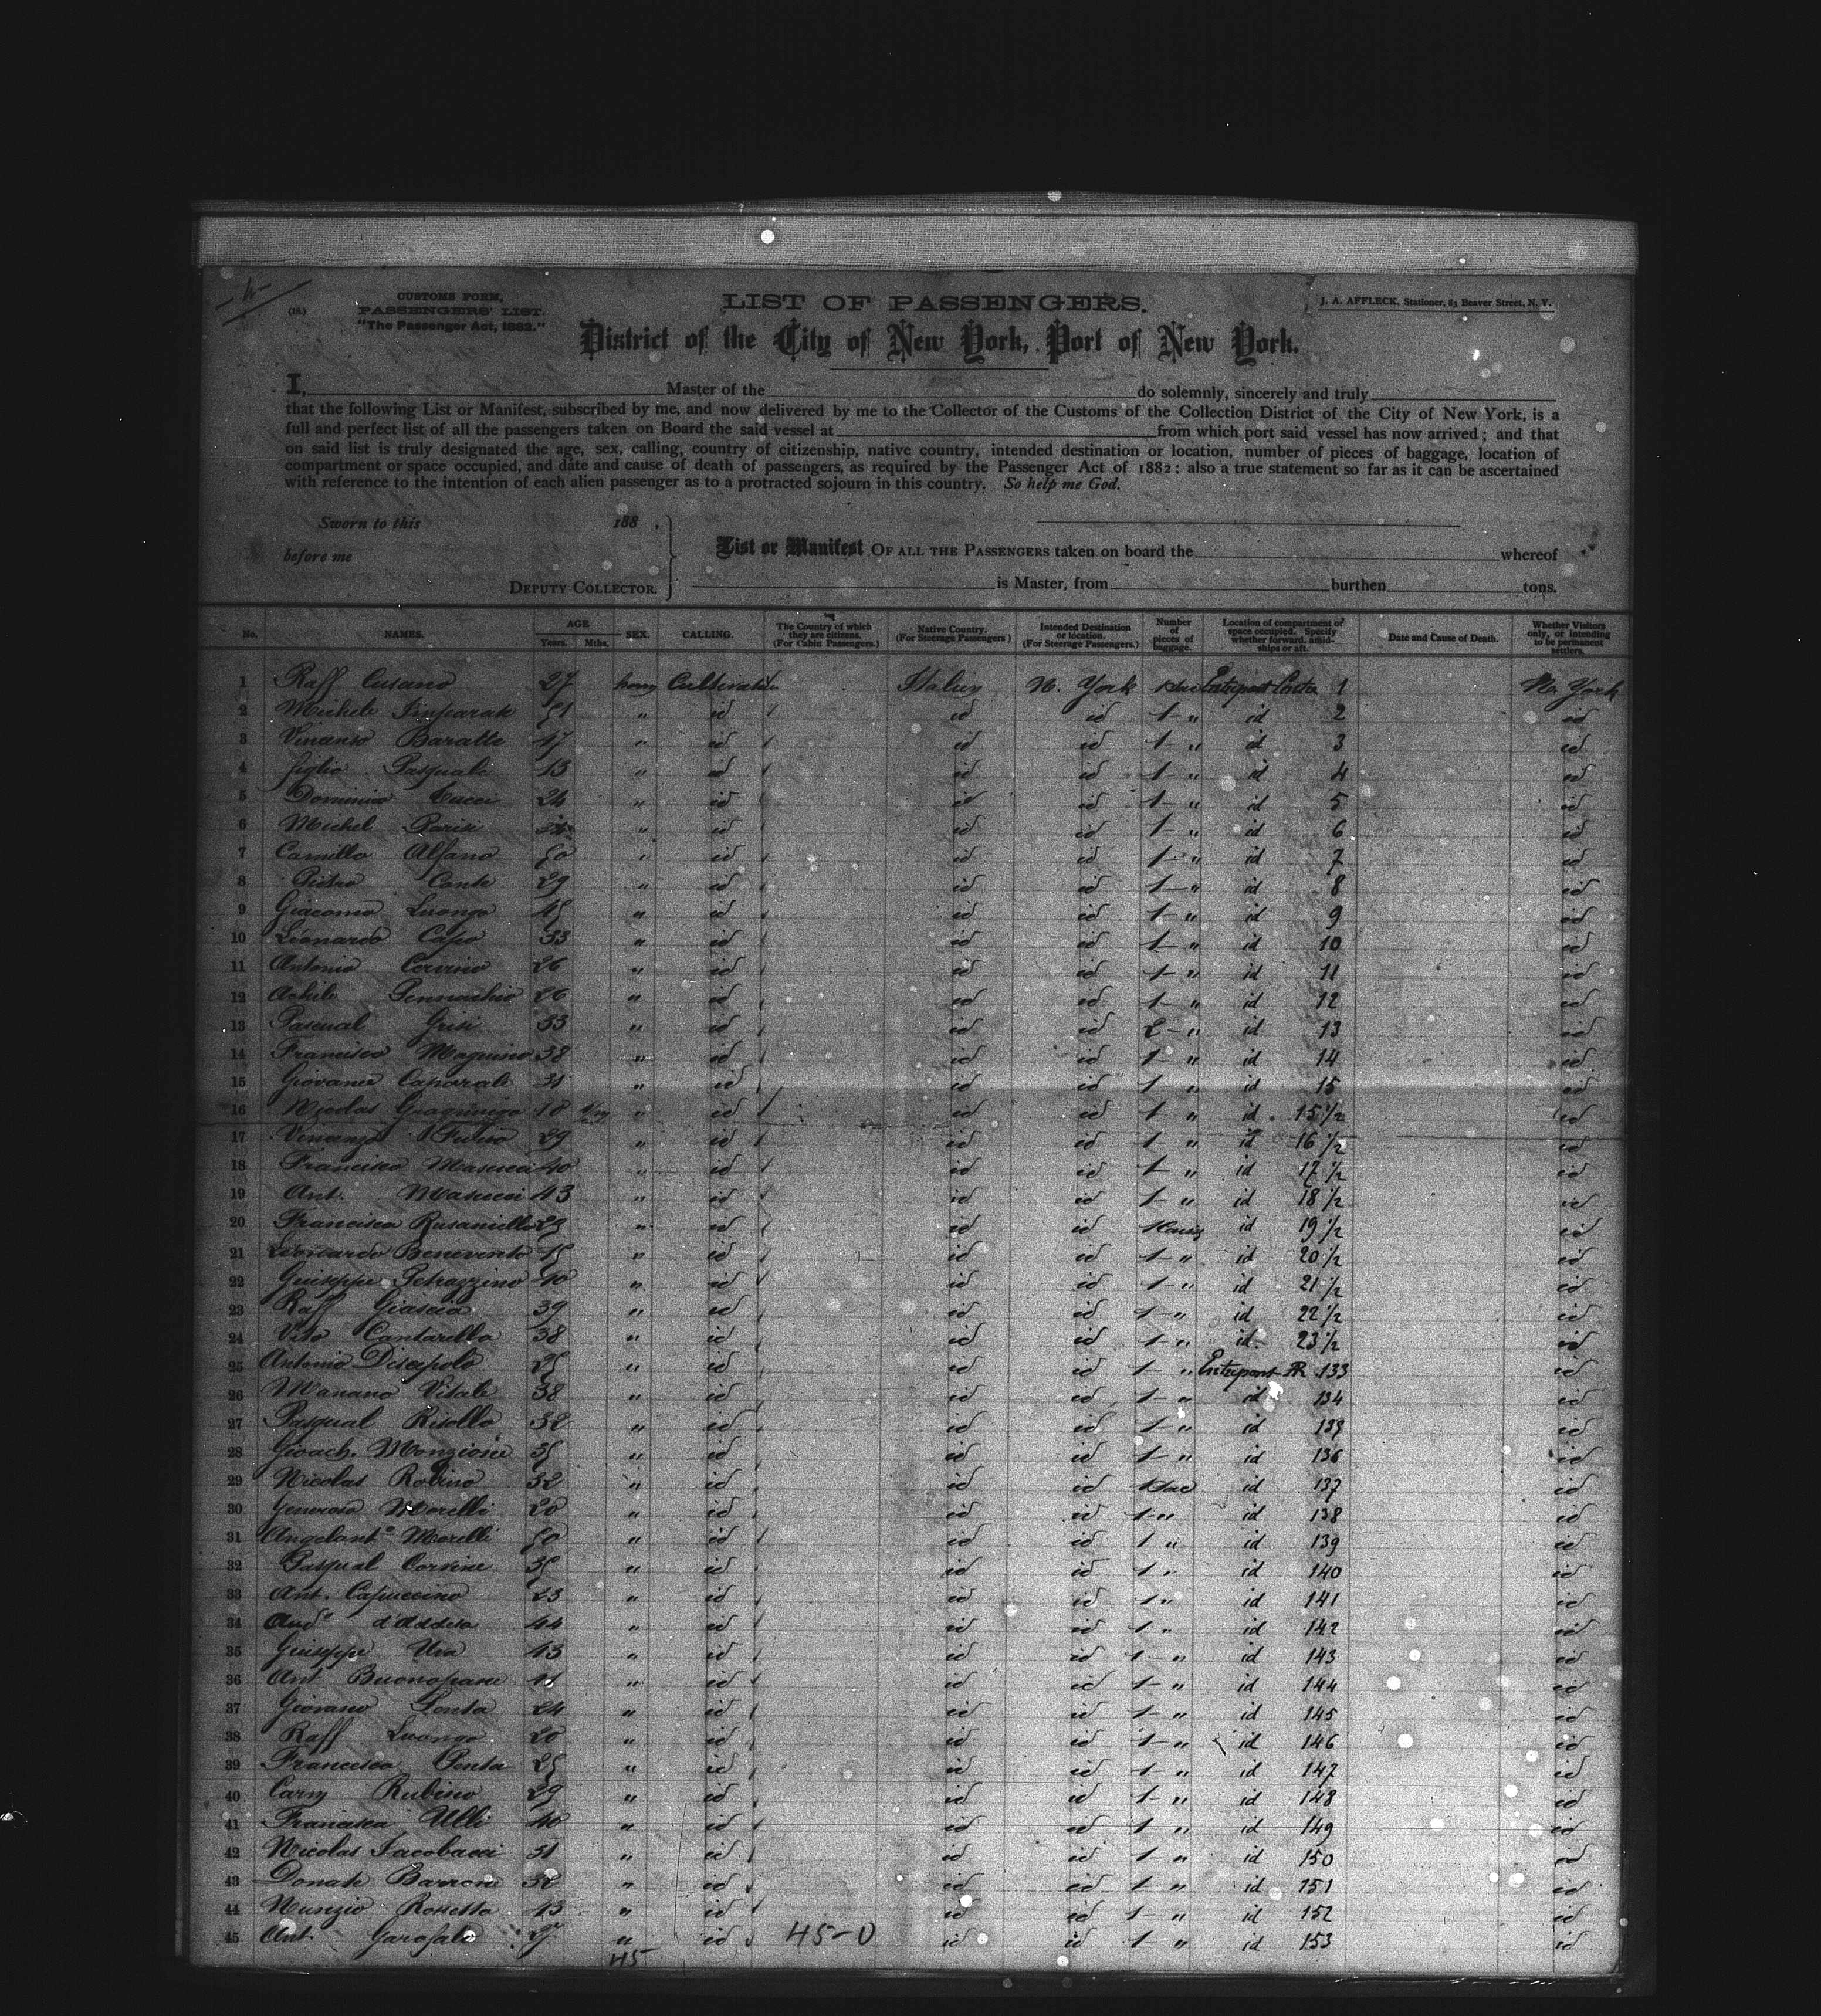 -4-
(18.)
CUSTOMS FORM,
PASSENGERS' LIST.
"The Passenger Act, 1882."
LIST OF PASSENGERS.
J. A. AFFLECK, Stationer, 83 Beaver Street, N. Y.
District of the City of New York, Port of New York.
I, Master of the do solemnly, sincerely and truly
that the following List or Manifest, subscribed by me, and now delivered by me to the Collector of the Customs of the Collection District of the City of New York, is a
full and perfect list of all the passengers taken on Board the said vessel at from which port said vessel has now arrived; and that
on said list is truly designated the age, sex, calling, country of citizenship, native country, intended destination or location, number of pieces of baggage, location of
compartment or space occupied, and date and cause of death of passengers, as required by the Passenger Act of 1882: also a true statement so far as it can be ascertained
with reference to the intention of each alien passenger as to a protracted sojourn in this country. So help me God.
Sworn to this 188 .
before me
DEPUTY COLLECTOR.
List or Manifest OF ALL THE PASSENGERS taken on board the whereof
is Master, from burthen tons.
No. NAMES. AGE Years. Mths. SEX. CALLING. The Country of which they are citizens. (For Cabin Passengers.) Native Country. (For Steerage Passengers) Intended Destination or location. (For Steerage Passengers.) Number of pieces of baggage. Location of compartment or space occupied. Specify whether forward, amidships or aft. Date and Cause of Death. Whether Visitors only, or intending to be permanent settlers.
1 Raff Cusano 27 hom Italy N. York 1 Sac 1 N. York
2 Michele Imparato 51 " id id id 1 " id 2 id
3 Vincenzo Baratto 47 " id id id 1 " id 3 id
4 figlio Pasquale 13 " id id id 1 " id 4 id
5 Dominico Cucci 24 " id id id 1 " id 5 id
6 Michel Parisi " id id id 1 " id 6 id
7 Camillo Alfano 50 " id id id 1 " id 7 id
8 Pietro Conte 29 " id id id 1 " id 8 id
9 Giacomo Luongo 45 " id id id 1 " id 9 id
10 Lionardo Capo 33 " id id id 1 " id 10 id
11 Antonio Corvino 26 " id id id 1 " id 11 id
12 Achile Pennachio 26 " id id id 1 " id 12 id
13 Pascual Grisi 33 " id id id 2 " id 13 id
14 Francisco Maquino 38 " id id id 1 " id 14 id
15 Giovanni Caporale 31 " id id id 1 " id 15 id
16 Nicolas 10 " id id id 1 " id 15 1/2 id
17 Vincenzo 29 " id id id 1 " id 16 1/2 id
18 Francisco Masucci 40 " id id id 1 " id 17 1/2 id
19 Ant. Masucci 43 " id id id 1 " id 18 1/2 id
20 Francisco Rusaniello " id id id id 19 1/2 id
21 Leonardo Benevento 45 " id id id 1 " id 20 1/2 id
22 Giuseppe Petrazzino 40 " id id id 1 " id 21 1/2 id
23 Raff Giascia 39 " id id id 1 " id 22 1/2 id
24 Vito Cantarella 38 " id id id 1 " id 23 1/2 id
25 Antonio Discepolo 25 " id id id 1 " Entrepont AR 133 id
26 Mariano Vitale 38 " id id id 1 " id 134 id
27 Pasqual Risollo 32 " id id id 1 " id 135 id
28 Gioach. Monzione 35 " id id id 1 " id 136 id
29 Nicolas Robino 32 " id id id 1 Sac id 137 id
30 Generoso Morelli 20 " id id id 1 " id 138 id
31 Angelant° Morelli 50 " id id id 1 " id 139 id
32 Pasqual Corvine 35 " id id id 1 " id 140 id
33 Ant. Capuccino 23 " id id id 1 " id 141 id
34 d'Addesa 44 " id id id 1 " id 142 id
35 Giuseppe Uva 43 " id id id 1 " id 143 id
36 Ant Buonopane " id id id 1 " id 144 id
37 Giovano Penta 24 " id id id 1 " id 145 id
38 Raff Luongo 20 " id id id 1 " id 146 id
39 Francisco Penta 25 " id id id 1 " id 147 id
40 Carm Rubino 29 " id id id 1 " id 148 id
41 Francisco Ulli 40 " id id id 1 " id 149 id
42 Nicolas Jacobacci 31 " id id id 1 " id 150 id
43 Donato Barrone 32 " id id id 1 " id 151 id
44 Nunzio Rossetta 43 " id id id 1 " id 152 id
45 Ant. Garofalo 27 " id 45-0 id id 1 " id 153 id
45